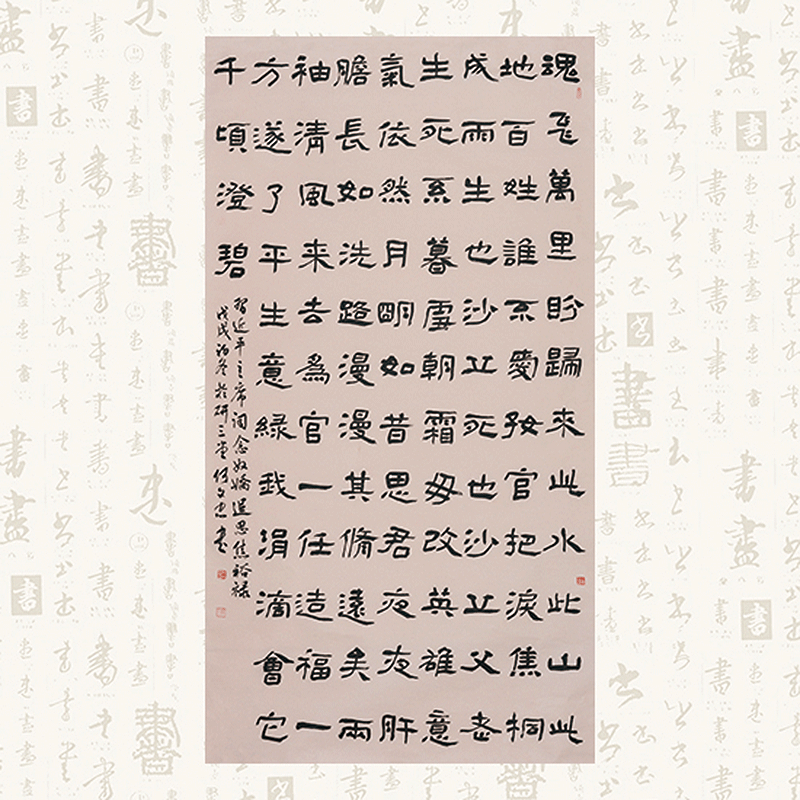 魂飛萬里盼歸來此水此山此
地百姓誰不愛好官把淚焦桐
成雨生也沙丘死也沙丘父老
生死系暮雪朝霜毋改英雄意
氣依然月明如昔思君夜夜肝
膽長如洗路漫漫其脩遠矣兩
袖清風来去為官一任造福一
方遂了平生意綠我涓滴會它
千頃澄碧
習近平主席詞念奴嬌追思焦裕祿
戊戌初冬於研三堂何書